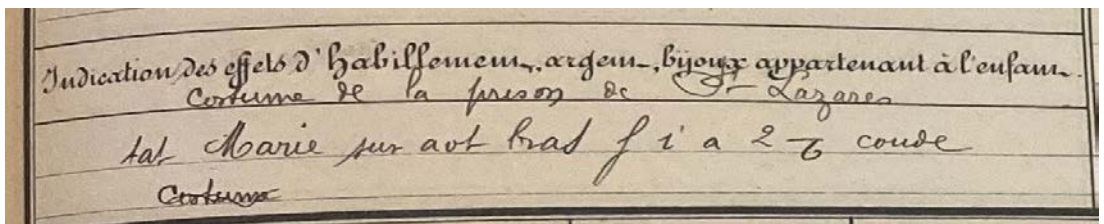 Indication des effets d'habillement, argent, bijoux appartenant à l'enfant.
Costume de la prison de St Lazare
tat Marie sur avt bras f i a 2 coude
Costume